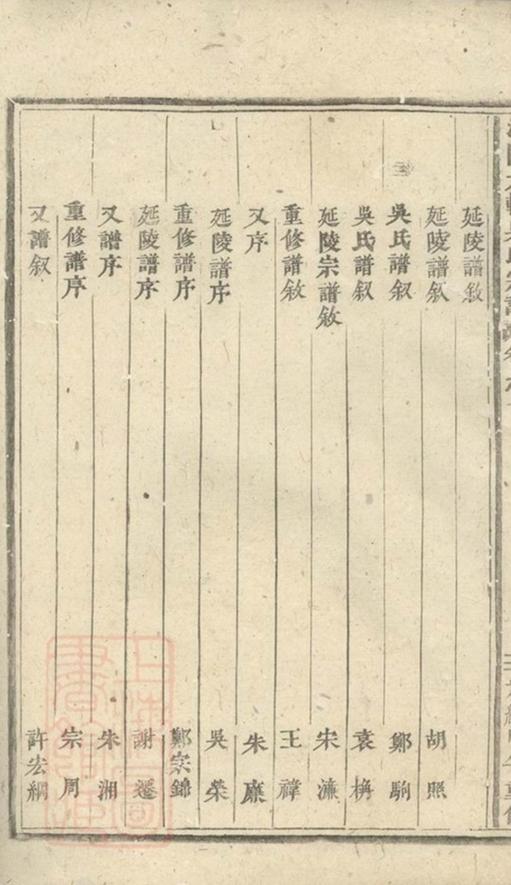 延陵譜敘
延陵譜叙 胡照
吳氏譜叙 鄭駒
吳氏譜叙 袁桷
延陵宗譜敘 宋濂
重修譜敘 王禕
又序 朱廉
延陵譜序 吳榮
重修譜序 鄭宗錦
延陵譜序 謝遷
又譜序 朱湘
重修譜序 宗周
又譜叙 許宏綱